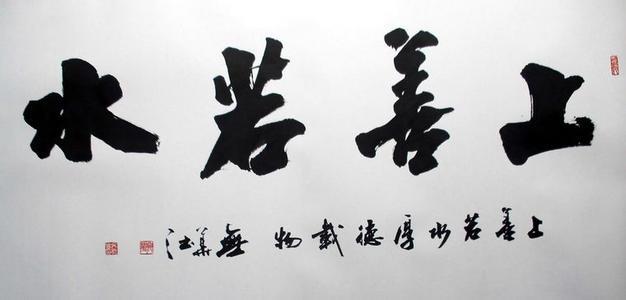 上善若水
上善若水厚德載物 無華